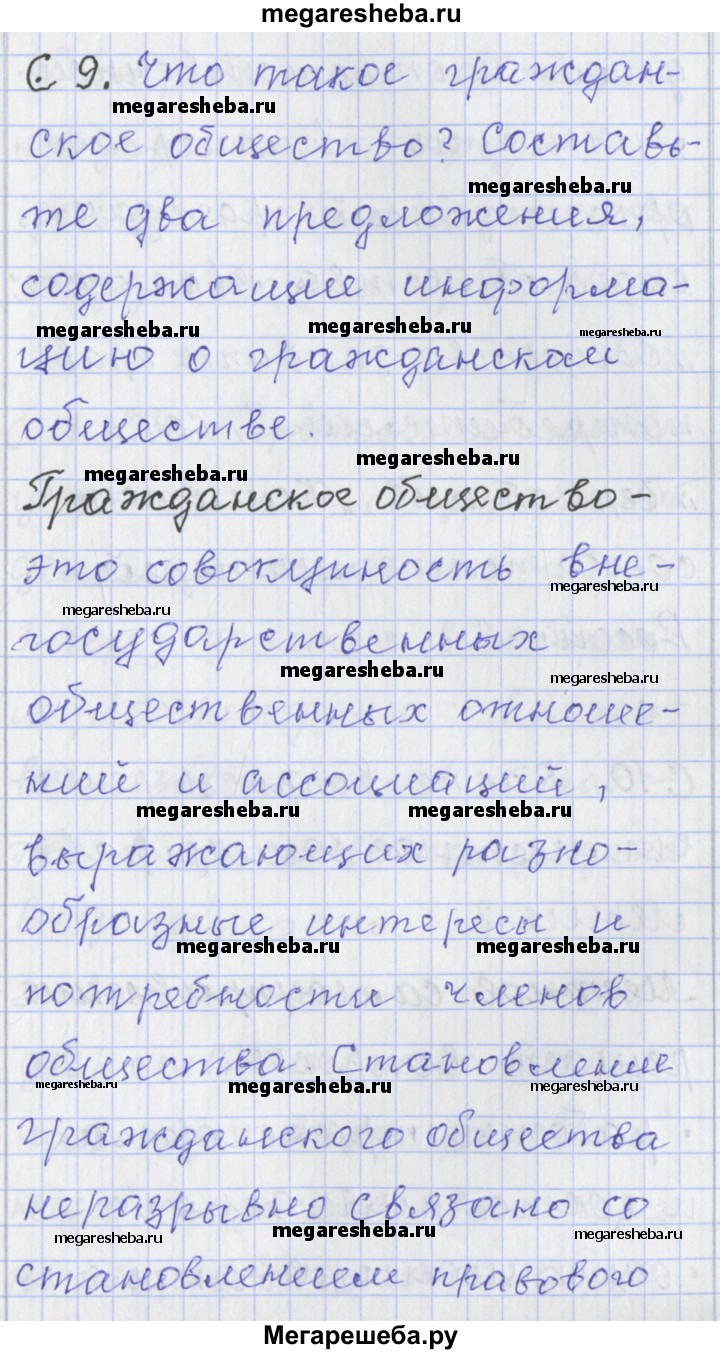 megaresheba.ru
С 9. Что такое граждан-
megaresheba.ru
ское общество? Составь-
megaresheba.ru
те два предложения,
содержащие информа-
megaresheba.ru megaresheba.ru megaresheba.ru
цию о гражданском
обществе.
megaresheba.ru megaresheba.ru
Гражданское общество-
это совокупность вне-
megaresheba.ru megaresheba.ru
государственных
megaresheba.ru megaresheba.ru
общественных отноше-
ний и ассоциаций,
megaresheba.ru megaresheba.ru
выражающих разно-
образные интересы и
megaresheba.ru megaresheba.ru
потребности членов
общества. Становление
megaresheba.ru megaresheba.ru megaresheba.ru
гражданского общества
неразрывно связано со
megaresheba.ru megaresheba.ru megaresheba.ru
становлением правового
Мегарешеба.ру